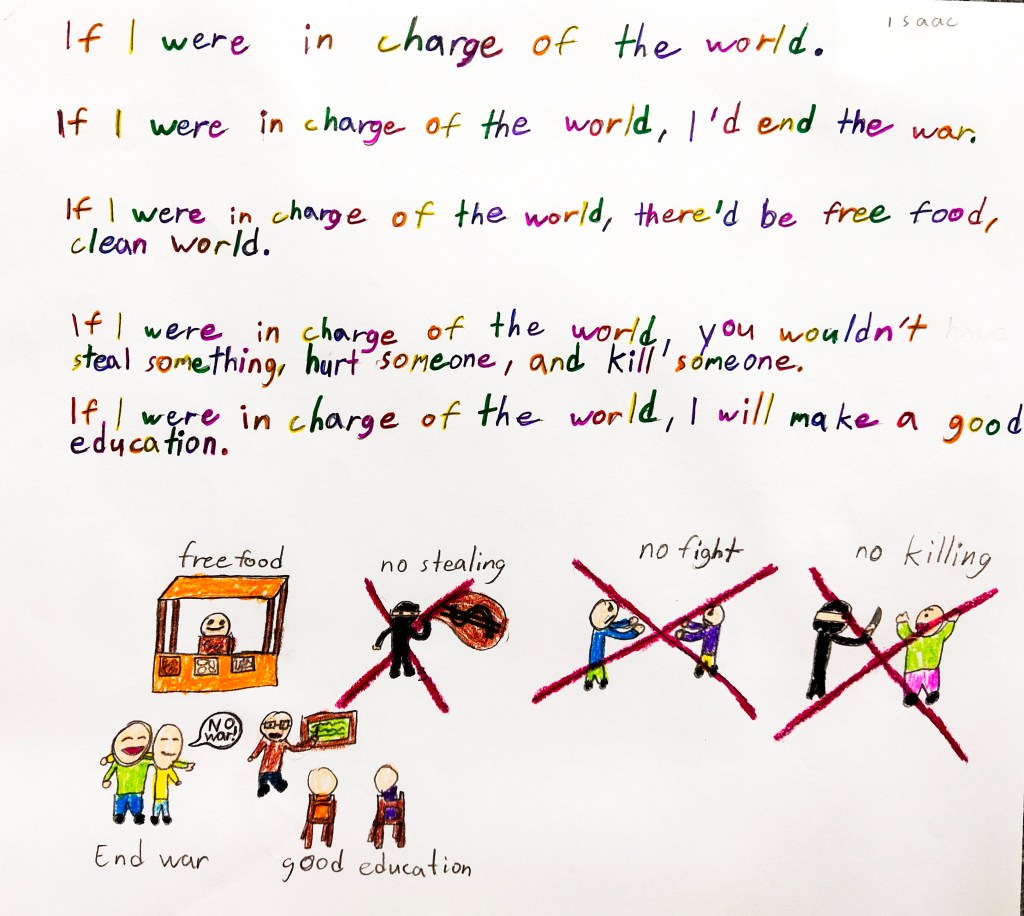 Isaac
If I were in charge of the world.
If I were in charge of the world, I'd end the war.
If I were in charge of the world, there'd be free food,
clean world.
If I were in charge of the world, you wouldn't have
steal something, hurt someone, and kill someone.
If I were in charge of the world, I will make a good
education.
free food
no stealing
no fight
no killing
$
No
war!
End war
good education